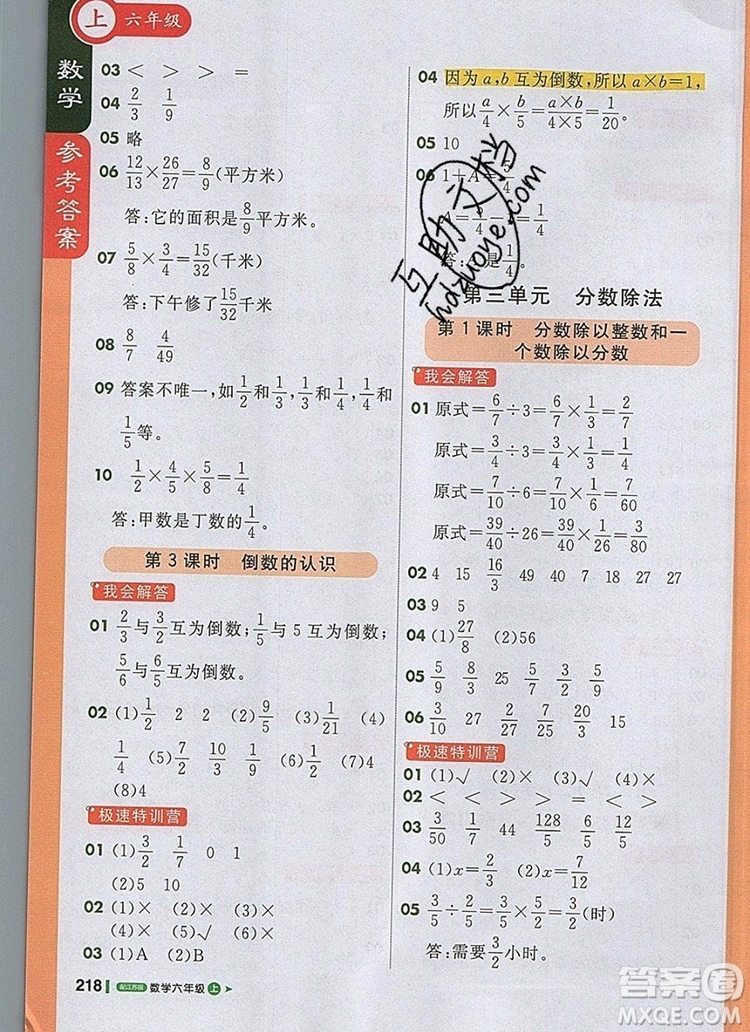 上 六年级
数学
参考答案
03 < > > =
04 2/3 1/9
05 略
06 12/13×26/27=8/9(平方米)
答:它的面积是8/9平方米。
07 5/8×3/4=15/32(千米)
答:下午修了15/32千米
08 8/7 4/49
09 答案不唯一,如1/2和1/3,1/3和1/4,1/4和
1/5等。
10 1/2×4/5×5/8=1/4
答:甲数是丁数的1/4。
第3课时 倒数的认识
我会解答
01 2/3与3/2互为倒数;1/5与5互为倒数;
5/6与6/5互为倒数。
02 (1)1/2 2 2 (2)9/5 (3)1/21 (4)
1/4 (5)7/2 10/7 (6)1/2 1/2 (7)4
(8)4
极速特训营
01 (1)3/2 1/7 0 1
(2)5 10
02 (1)× (2)× (3)× (4)×
(5)√ (6)×
03 (1)A (2)B
218 配江苏版 数学六年级 上
04 因为a,b互为倒数,所以a×b=1,
所以a/4×b/5=a×b/4×5=1/20。
05 10
06 1+A=5/4
=1/4
答: 是1/4。
互助文档
hdzuoye.com
第三单元 分数除法
第1课时 分数除以整数和一
个数除以分数
我会解答
01 原式=6/7÷3=6/7×1/3=2/7
原式=3/4÷3=3/4×1/3=1/4
原式=39/40÷26=39/40×1/26=3/80
02 4 15 16/3 49 4 27
03 9 5
04 (1)27/8 (2)56
05 5/9 8/5 3/2 3
06 3/10 27 2/27 7/2 20/3 15
极速特训营
01 (1)√ (2)× (3)× (4)×
02 < < > > > <
03 3/50 1/2 44 128/5 6/5 64
04 (1)x=2/3 (2)x=4/3
05 3/5÷2/5=3/5×5/2=3/2(时)
答:需要3/2小时。
答案圈
MXQE.COM